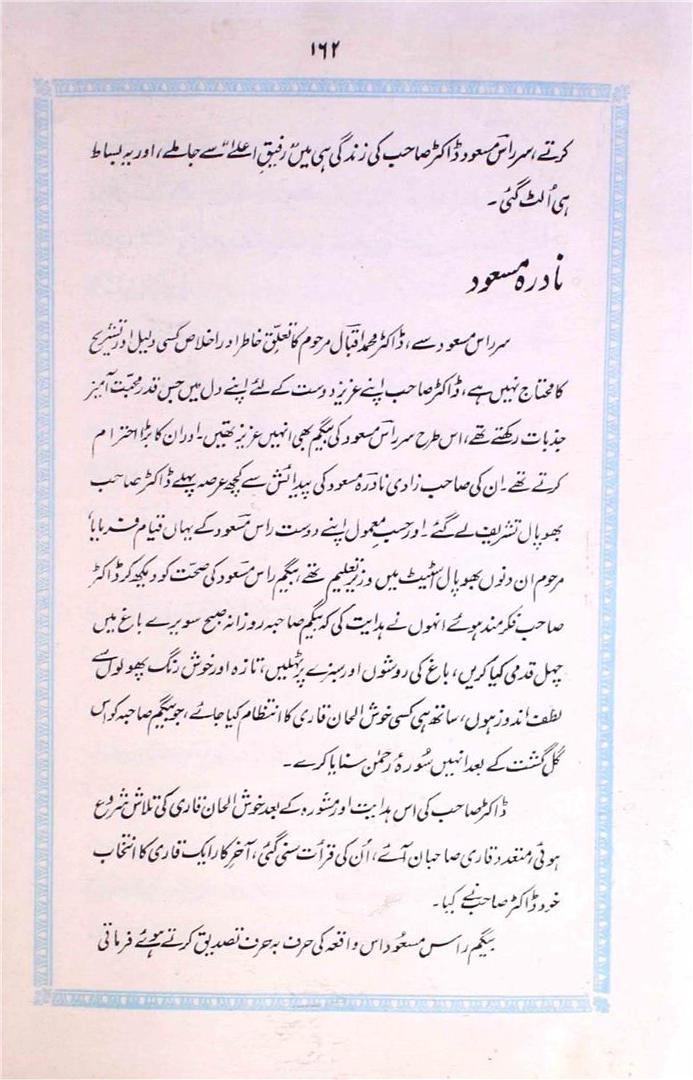 ۱۶۲
کرتے، سر راس مسعود ڈاکٹر صاحب کی زندگی ہی میں "رفیقِ اعلےٰ" سے جا ملے، اور یہ بساط
ہی اُلٹ گئی۔
نادرہ مسعود
سر راس مسعود سے، ڈاکٹر محمد اقبال مرحوم کا تعلّقِ خاطر اور اخلاص کسی دلیل اور تشریح
کا محتاج نہیں ہے، ڈاکٹر صاحب اپنے عزیز دوست کے لئے اپنے دل میں جس قدر محبّت آمیز
جذبات رکھتے تھے، اس طرح سر راس مسعود کی بیگم بھی انہیں عزیز تھیں۔ اور ان کا بڑا احترام
کرتے تھے۔ ان کی صاحب زادی نادرہ مسعود کی پیدائش سے کچھ عرصہ پہلے ڈاکٹر صاحب
بھوپال تشریف لے گئے۔ اور حسبِ معمول اپنے دوست راس مسعود کے یہاں قیام فرمایا،
مرحوم ان دنوں بھوپال اسٹیٹ میں وزیر تعلیم تھے، بیگم راس مسعود کی صحّت کو دیکھ کر ڈاکٹر
صاحب فکر مند ہوئے انہوں نے ہدایت کی کہ بیگم صاحبہ روزانہ صبح سویرے باغ میں
چہل قدمی کیا کریں، باغ کی روشوں اور سبزے پر ٹہلیں، تازہ اور خوش رنگ پھولوں سے
لطف اندوز ہوں، ساتھ ہی کسی خوش الحان قاری کا انتظام کیا جائے، جو بیگم صاحبہ کو اس
گُل گشت کے بعد انہیں سُورۂ رحمٰن سنایا کرے۔
ڈاکٹر صاحب کی اس ہدایت اور مشورہ کے بعد خوش الحان قاری کی تلاش شروع
ہوئی متعدد قاری صاحبان آئے، اُن کی قرأت سنی گئی، آخر کار ایک قاری کا انتخاب
خود ڈاکٹر صاحب نے کیا۔
بیگم راس مسعُود اس واقعہ کی حرف بہ حرف تصدیق کرتے ہوئے فرماتی